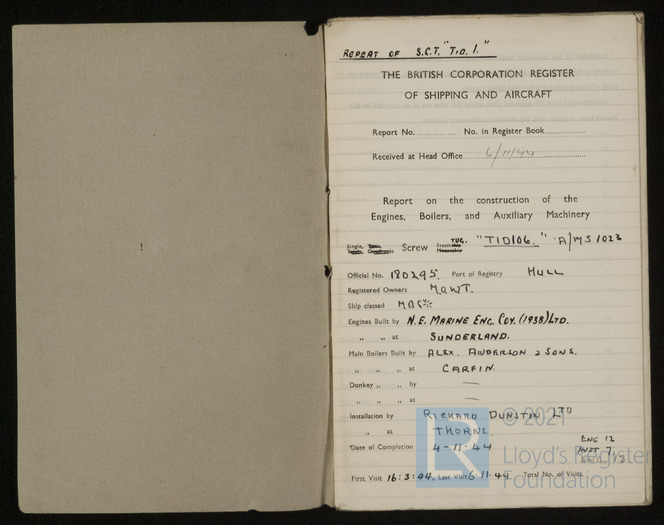 REPEAT OF S.C.T. "TID. 1."
THE BRITISH CORPORATION REGISTER
OF SHIPPING AND AIRCRAFT
Report No. No. in Register Book
Received at Head Office 6/11/44
Report on the construction of the
Engines, Boilers, and Auxiliary Machinery
Single, Screw TUG. "TID106." A/MS 1023
Official No. 180295. Port of Registry HULL
Registered Owners M.O.W.T.
Ship classed
Engines Built by N.E. MARINE ENG. COY. (1938) LTD.
„ „ at SUNDERLAND.
Main Boilers Built by ALEX. ANDERSON & SONS.
„ „ „ at CARFIN.
Donkey „ „ by —
„ „ „ at —
Installation by RICHARD DUNSTON LTD
„ at THORNE.
Date of Completion 4-11-44
ENG 12
INST 7
First Visit 16:3:44. Last Visit 6.11.44 Total No. of Visits
© 2021
Lloyd's Register
Foundation